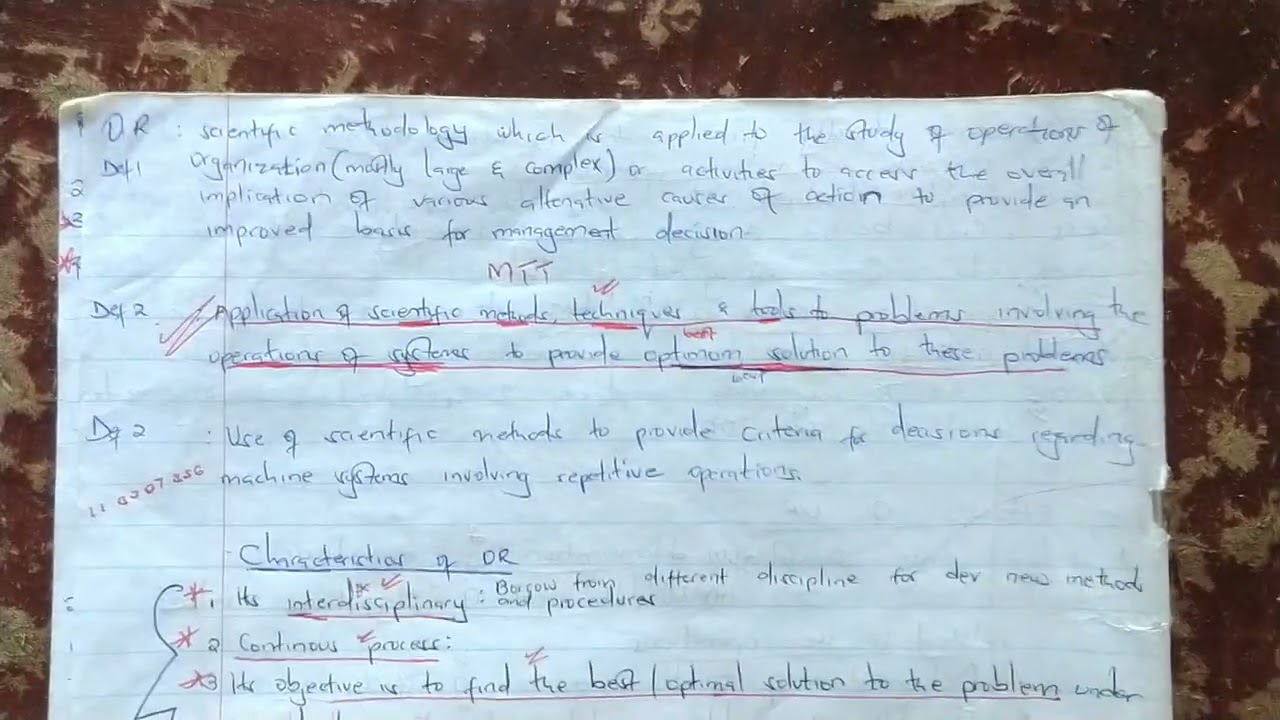 OR : scientific methodology which is applied to the study of operations of
Def 1 organization (mostly large & complex) or activities to access the overall
implication of various alternative causes of action to provide an
improved basis for management decision.
MTT
Def 2. Application of scientific methods, techniques & tools to problems involving the
best
operations of systems to provide optimum solution to these problems
best
Def 2 : Use of scientific methods to provide criteria for decisions regarding
machine systems involving repetitive operations.
Characteristics of OR
* 1. Its interdisciplinary : Borrow from different discipline for dev new methods
and procedures
* 2 Continous process:
* 3 Its objective is to find the best / optimal solution to the problem under